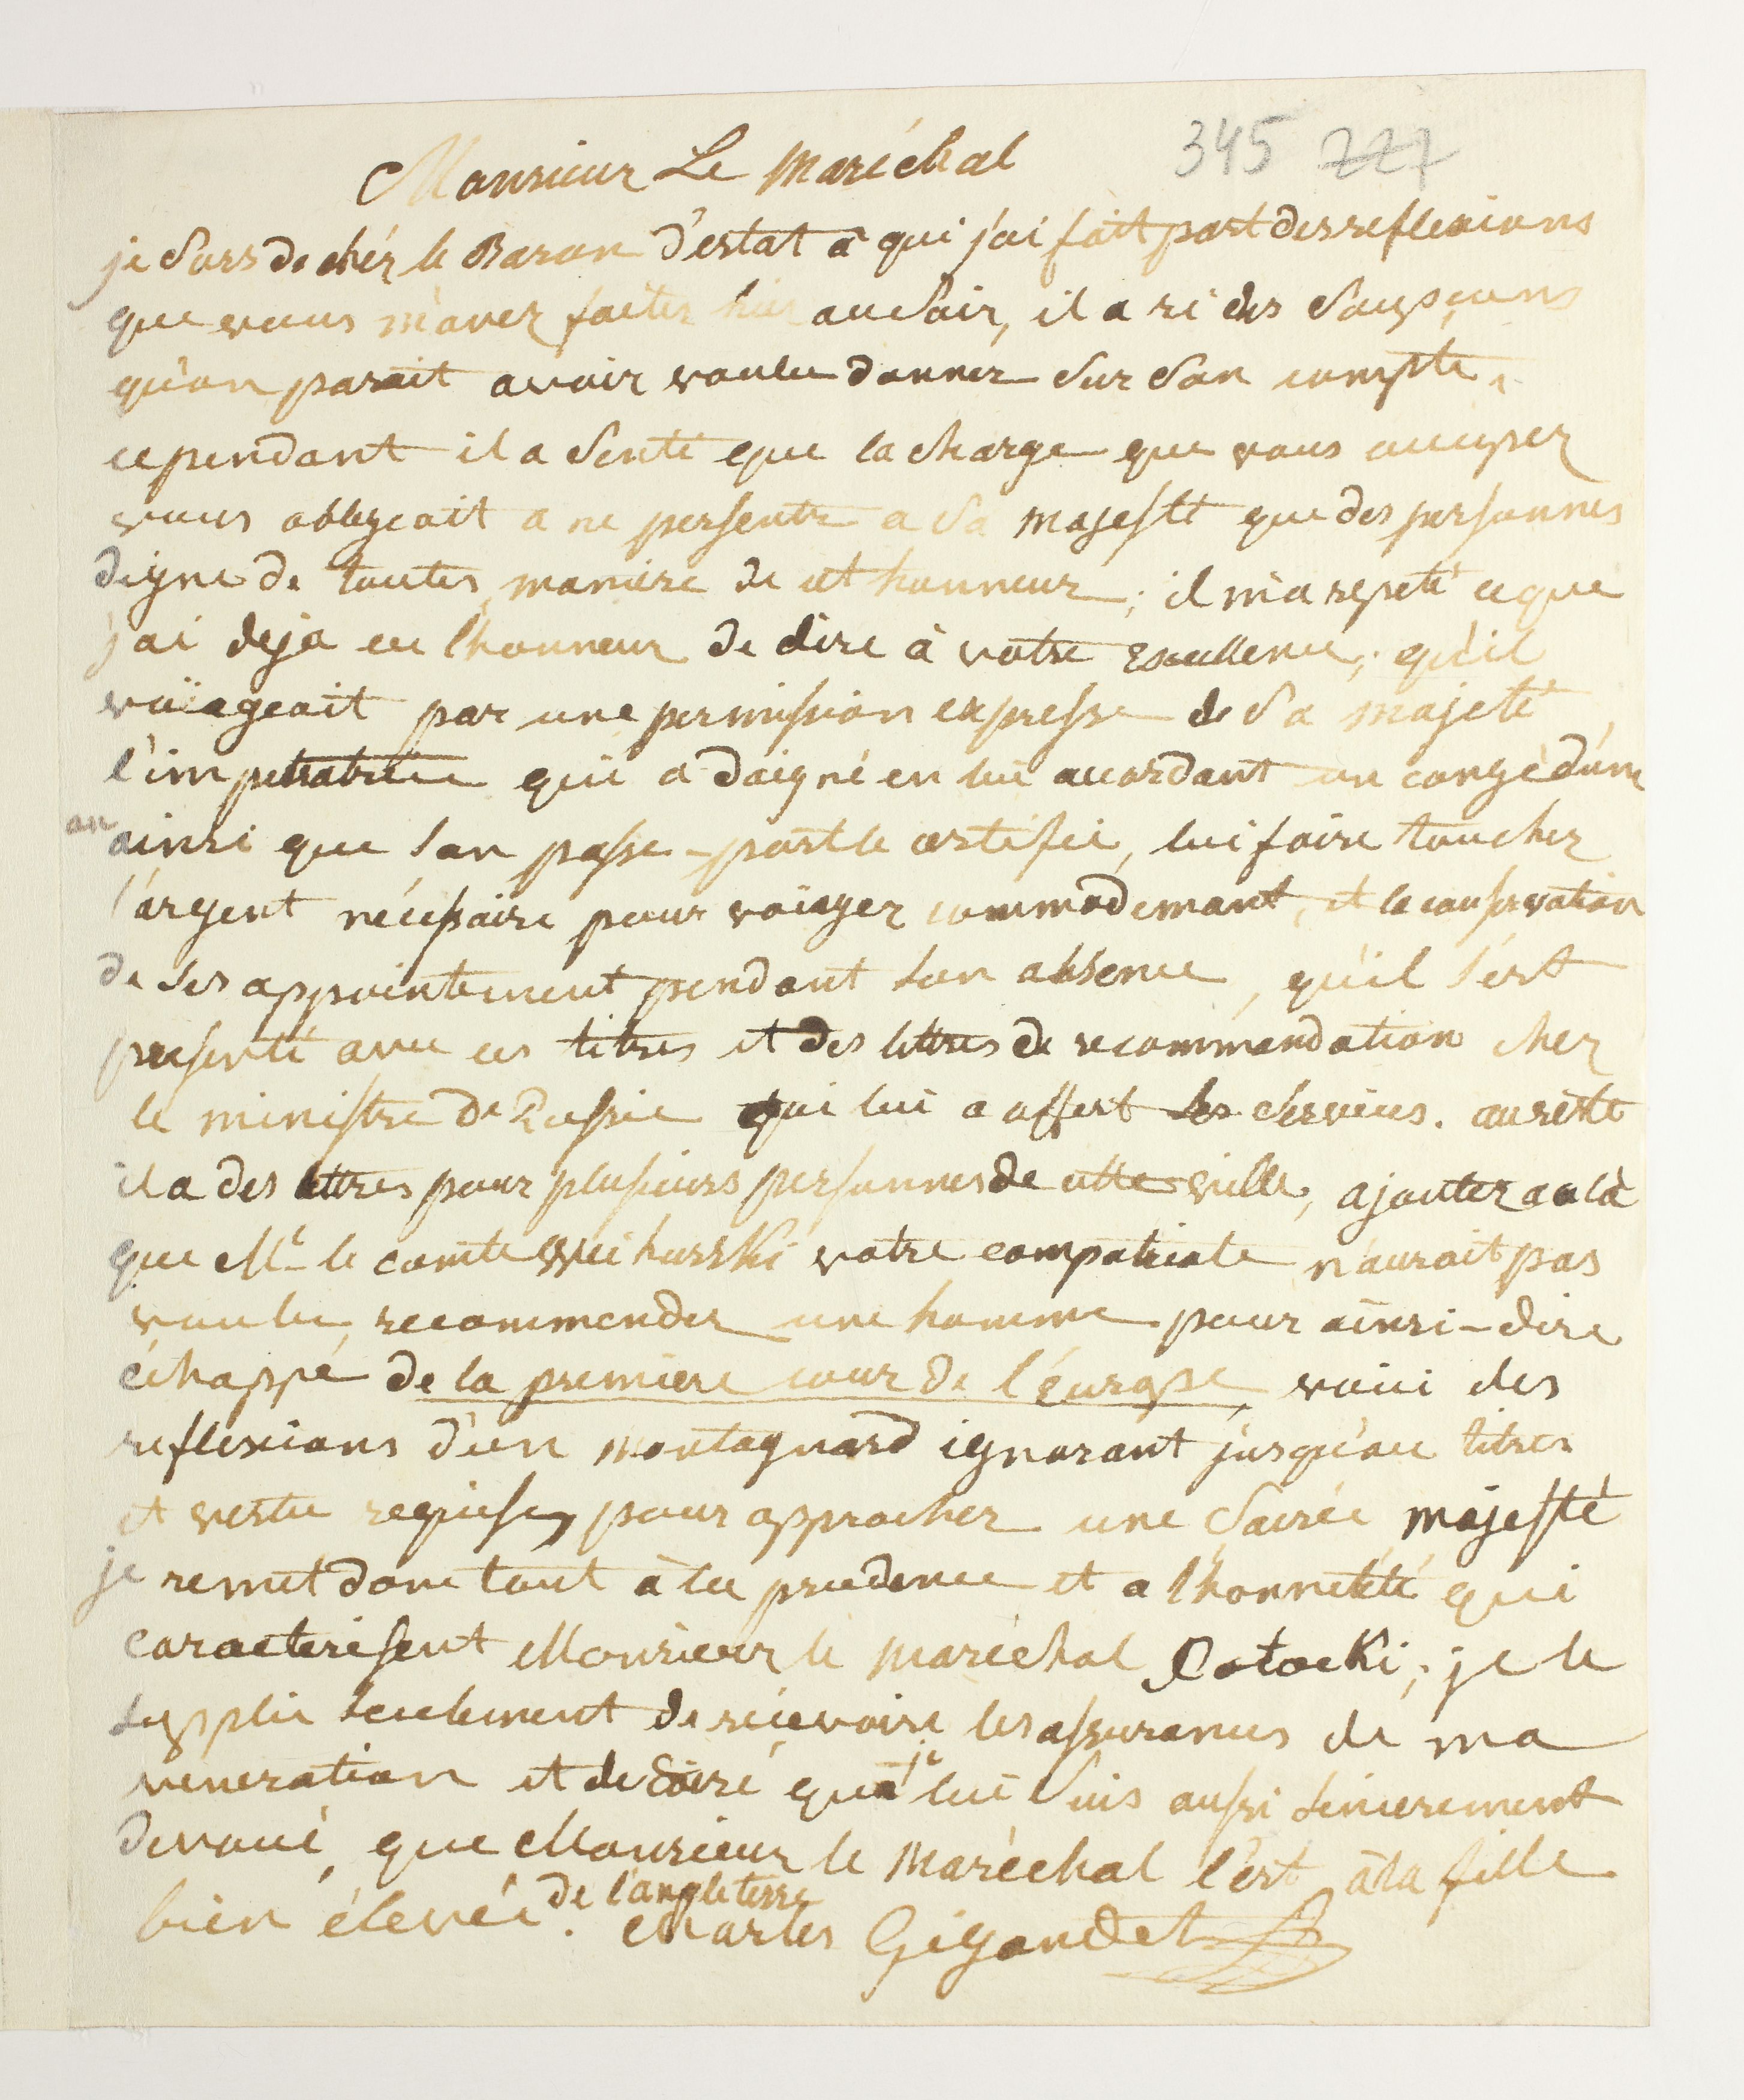 345 227
Monsieur Le Maréchal
je sors de chéz le Baron d'estat à qui j'ai fait part des reflexions
que vous m'avez faites hier au soir, il a ri des soupçons
qu'on parait avoir voulu donner sur son compte,
cependant il a senti que la charge que vous occupez
vous obligeait a ne persenter a sa majesté que des personnes
digne de toutes maniere de cet honneur; il m'a repeté ce que
j'ai deja eu l'honneur de dire à votre Excellence; qu'il
voïageait par une permission expresse de sa majeté
l'impetratrice qui a daigné en lui accordant un congé d'une
an ainsi que son passe-port le certifie, lui faire toucher
l'argent nécessaire pour voiager commodemant, et la conservation
de ses appointement pendant son absence, qu'il s'est
presenté avec ces titres et des lettres de recommandation chez
le ministre de Russie qui lui a offert ses services. au reste
il a des lettres pour plusieurs personnes de cette ville, ajoutez a cela
que Mr le comte Wiehurski votre compatriote n'aurait pas
voulu recommender une homme pour ainsi-dire
échappé de la premiere cour de l'éurope, voici des
reflexions d'un montagnard ignorant jusqu'au titres
et vertu requises pour approcher une sacrée majesté
je remet donc tout à la prudence et a l'honneteté qui
caracterisent Monsieur le maréchal Potocki; je le
supplie seulement de récevoire les assurances de ma
veneration et de coire que je lui suis aussi sincerement
devoué, que Monsieur le Maréchal l'est à la fille
bien élevée de l'angleterre. Charles Gigandet